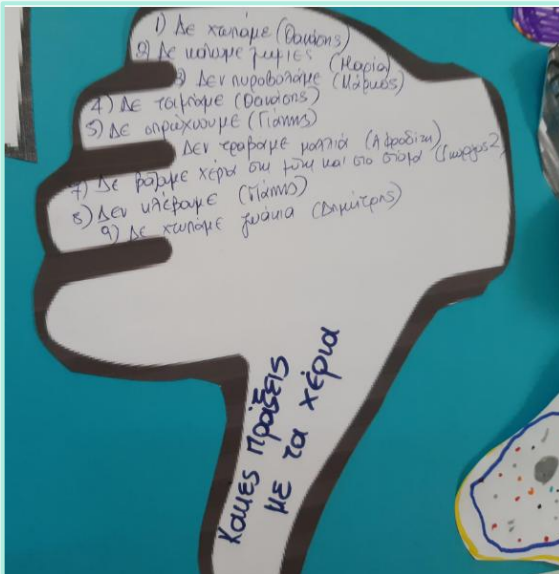 1) Δε χτυπάμε (Θανάσης)
2) Δε κάνουμε ζημιές (Μαρία)
3) Δεν πυροβολάμε (Μάρκος)
4) Δε τσιμπάμε (Θανάσης)
5) Δε σπρώχνουμε (Γιάννης)
Δεν τραβάμε μαλλιά (Αφροδίτη)
7) Δε βάζουμε χέρια στη μύτη και στο στόμα (Γιώργος 2)
8) Δεν κλέβουμε (Γιάννης)
9) Δε χτυπάμε ζωάκια (Δημήτρης)
Κακές πράξεις
με τα χέρια